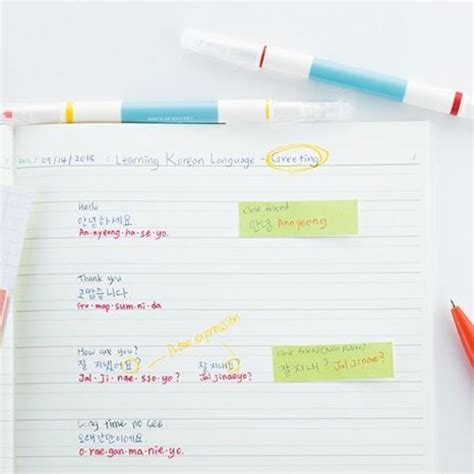 DATE / 09/14/2015 / Learning Korean Language - Greeting /
Hello
안녕하세요.
An·nyeong·ha·se·yo.
Close friend
안녕 Annyeong
Thank you
고맙습니다.
Go·map·sum·ni·da
Polite expression
How are you?
잘 지냈어요? 잘 지내요?
Jal·ji·nae·sso·yo? Jal jinaeyo?
Close friend (Non Polite)
잘 지내? Jal jinae?
Long time no see
오래간만이에요.
O·rae·gan·ma·nie·yo.